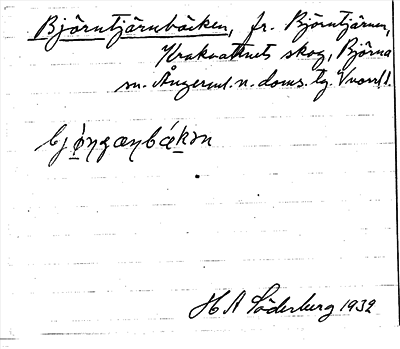 Björntjärnbäcken, fr. Björntjärnen,
skog, Björna
sn. Ångerml. n. doms. tg. Vnorrl.
bjö̀ŋæŋbækən
H A Söderberg 1932